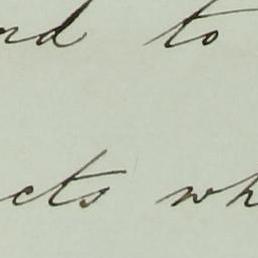 rd to
cts wh